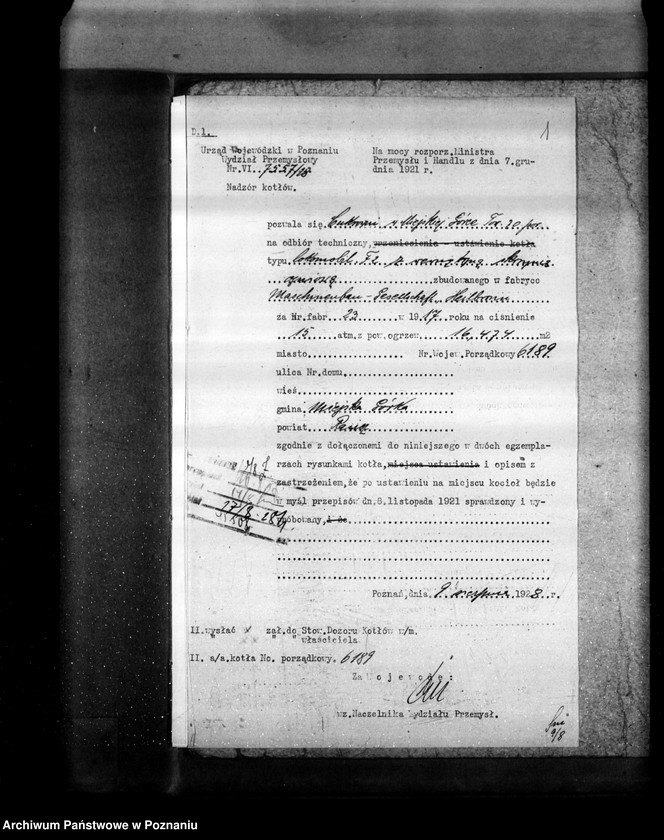 D.1.
1
Urząd Wojewódzki w Poznaniu
Wydział Przemysłowy
Nr.VI. 7557/28
Nadzór kotłów.
Na mocy rozporz.Ministra
Przemysłu i Handlu z dnia 7.gru-
dnia 1921 r.
pozwala się Cukrowni w Miejskiej Górce
na odbiór techniczny, przeniesienie - ustawienie kotła
typu
zbudowanego w fabryce
Maschinenbau - Gesellschaft Heilbronn
za Nr.fabr 23 w 1917 roku na ciśnienie
15 atm.z pow.ogrzew. 16,474 m2
miasto Nr.Wojew.Porządkowy 6189
ulica Nr.domu
wieś
gmina Miejska Górka
powiat
zgodnie z dołączonemi do niniejszego w dwóch egzempla-
rzach rysunkami kotła, miejsca ustawienia i opisem z
zastrzeżeniem, że po ustawieniu na miejscu kocioł będzie
w myśl przepisów dn.8.listopada 1921 sprawdzony i wy-
próbowany,
Poznań,dnia 9 sierpnia 1928.r.
II.wysłać zał.do Stow.Dozoru Kotłów w/m.
" " właściciela
II. a/a.kotła No. porządkowy. 6189
Za Wojewodę:
wz.Naczelnika Wydziału Przemysł.
9/8
Archiwum Państwowe w Poznaniu